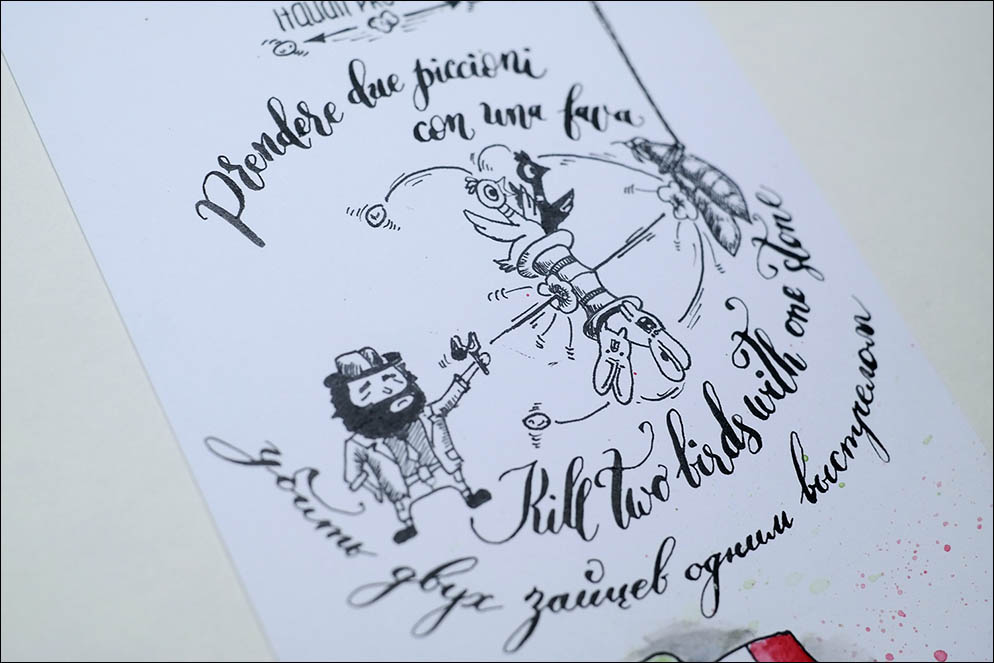 Prendere due piccioni
con una fava
Kill two birds with one stone
Убить двух зайцев одним выстрелом